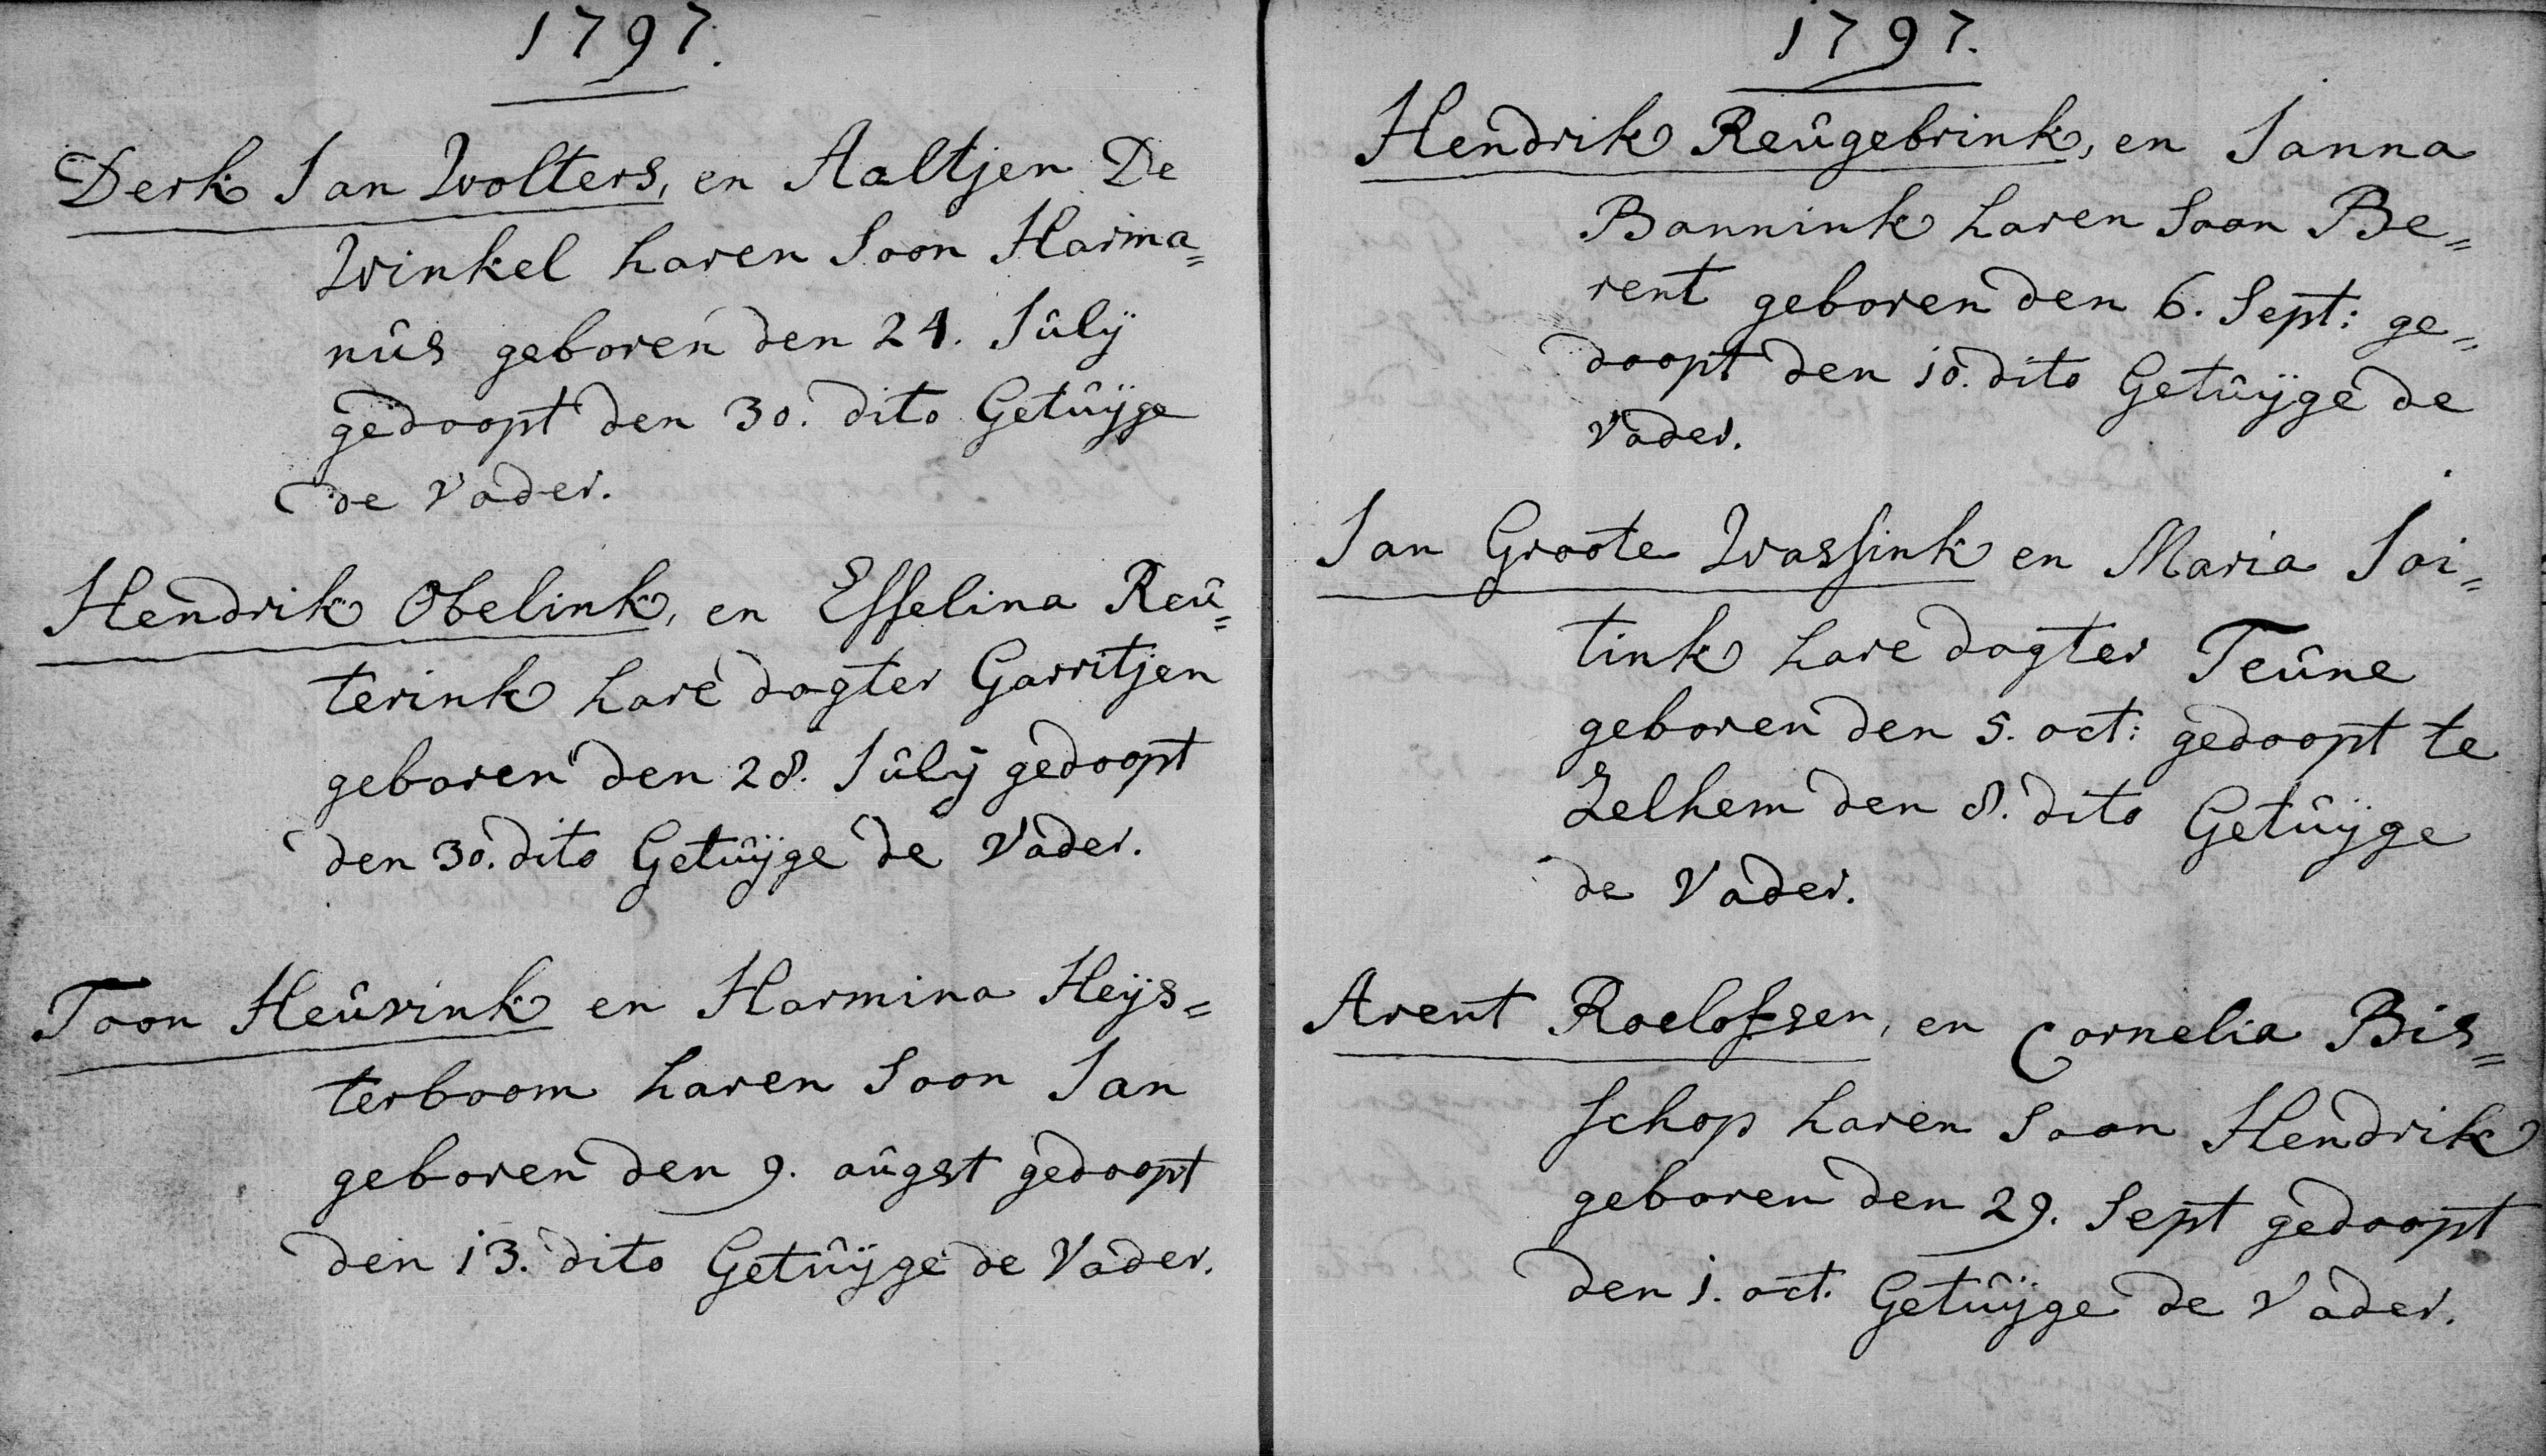 1797.
Derk Jan Wolters, en Aaltjen De
Winkel haren Soon Harma=
nûs geboren den 24. Jûlÿ
gedoopt den 30. dito Getûÿge
de Vader.
Hendrik Obelink, en Esselina Reû=
terink hare dogter Garritjen
geboren den 28. Jûlÿ gedoopt
den 30. dito Getûÿge de Vader.
Toon Heûvink en Harmina Heÿs=
terboom haren Soon Jan
geboren den 9. aûgst gedoopt
den 13. dito Getûÿge de Vader.
1797.
Hendrik Reûgebrink, en Janna
Bannink haren Soon Be=
rent geboren den 6. Sept: ge=
doopt den 10. dito Getûÿge de
Vader.
Jan Groote Wassink en Maria Soi=
tink hare dogter Teûne
geboren den 5. oct: gedoopt te
Zelhem den 8. dito Getûÿge
de Vader.
Arent Roelofsen, en Cornelia Bis=
schop haren Soon Hendrik
geboren den 29. Sept gedoopt
den 1. oct. Getûÿge de Vader.